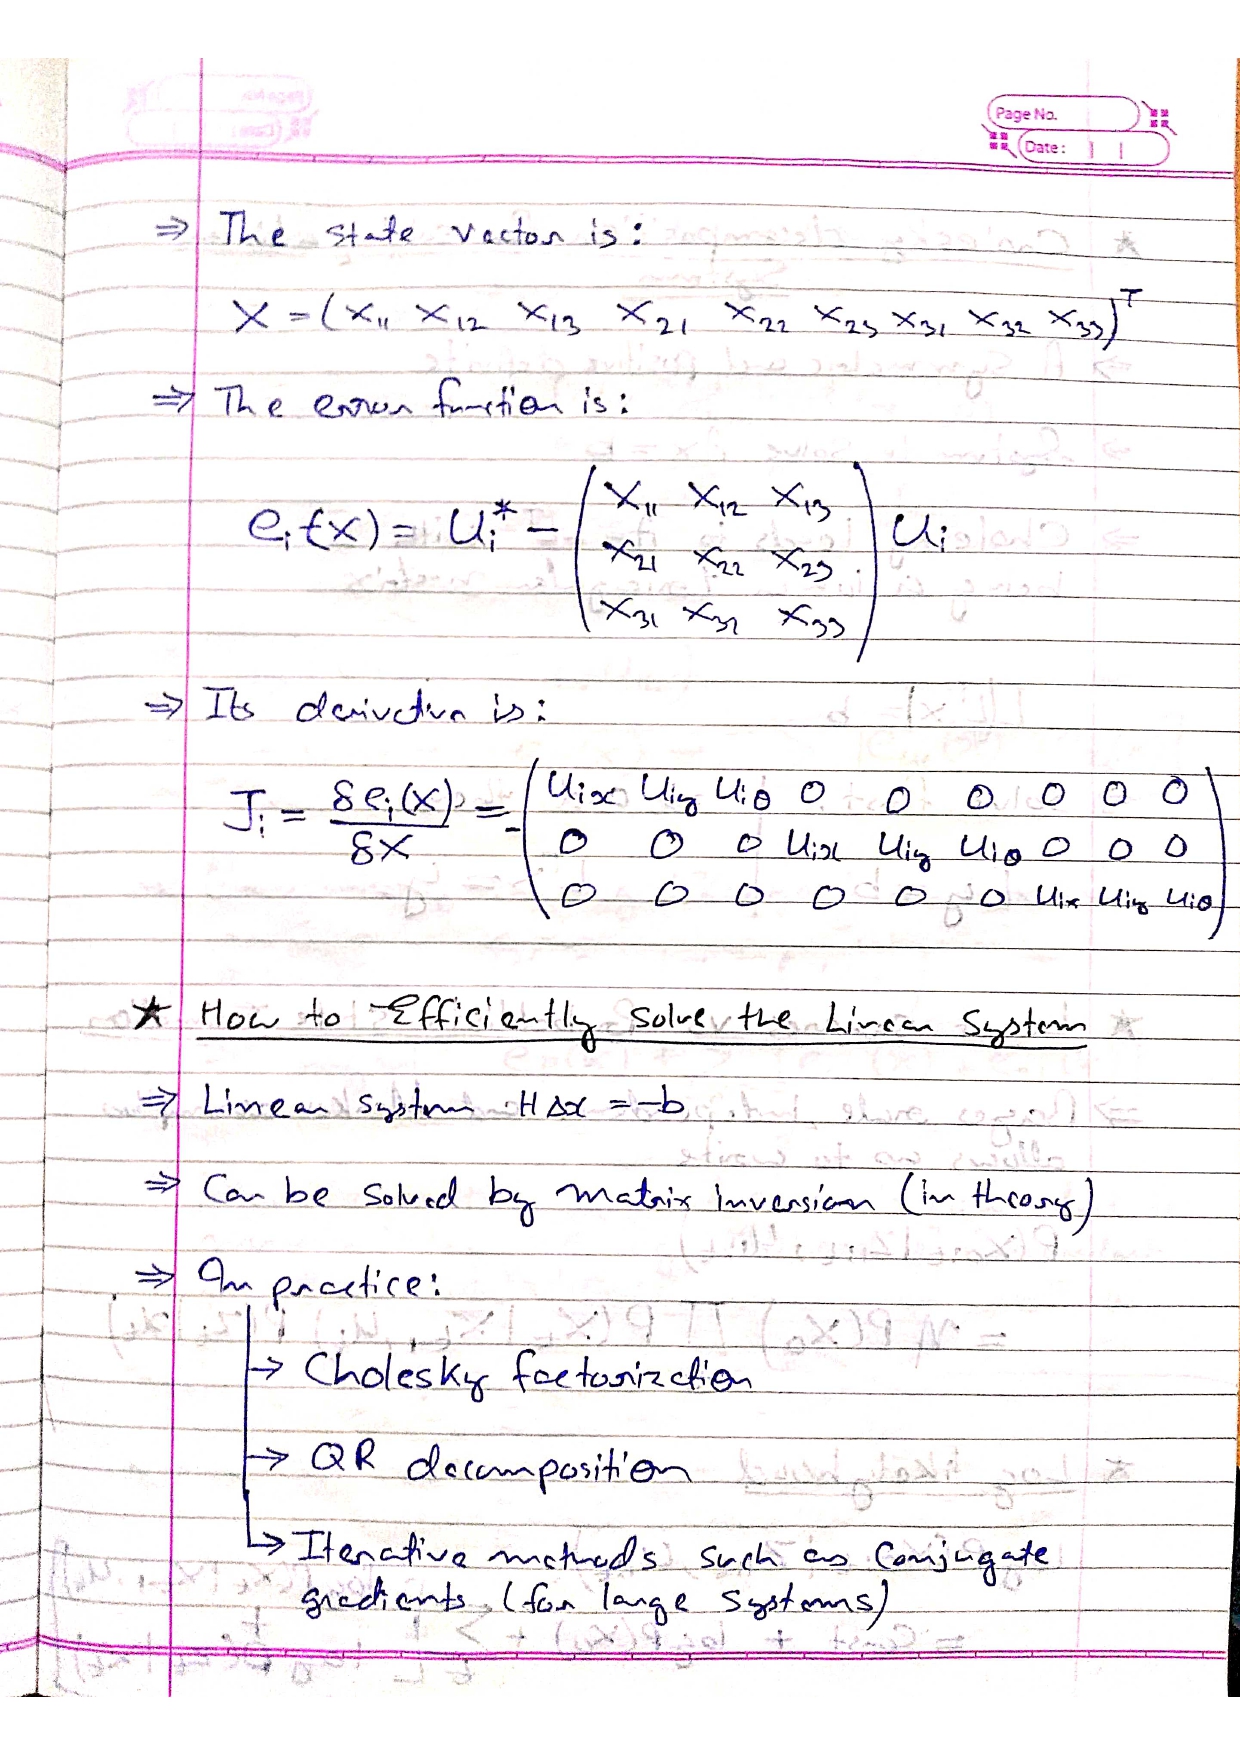 Page No.
Date:
⇒ The state vector is:
X = (x₁₁ x₁₂ x₁₃ x₂₁ x₂₂ x₂₃ x₃₁ x₃₂ x₃₃)ᵀ
⇒ The error function is:
eᵢ(x) = uᵢ* - ( x₁₁ x₁₂ x₁₃
x₂₁ x₂₂ x₂₃
x₃₁ x₃₂ x₃₃ ) uᵢ
⇒ Its derivative is:
Jᵢ = δeᵢ(x) / δx = - ( uᵢₓ uᵢy uᵢθ 0 0 0 0 0 0
0 0 0 uᵢₓ uᵢy uᵢθ 0 0 0
0 0 0 0 0 0 uᵢₓ uᵢy uᵢθ )
★ How to Efficiently solve the Linear System
⇒ Linear system HΔx = -b
⇒ Can be solved by matrix inversion (in theory)
⇒ In practice:
→ Cholesky factorization
→ QR decomposition
→ Iterative methods such as conjugate
gradients (for large systems)